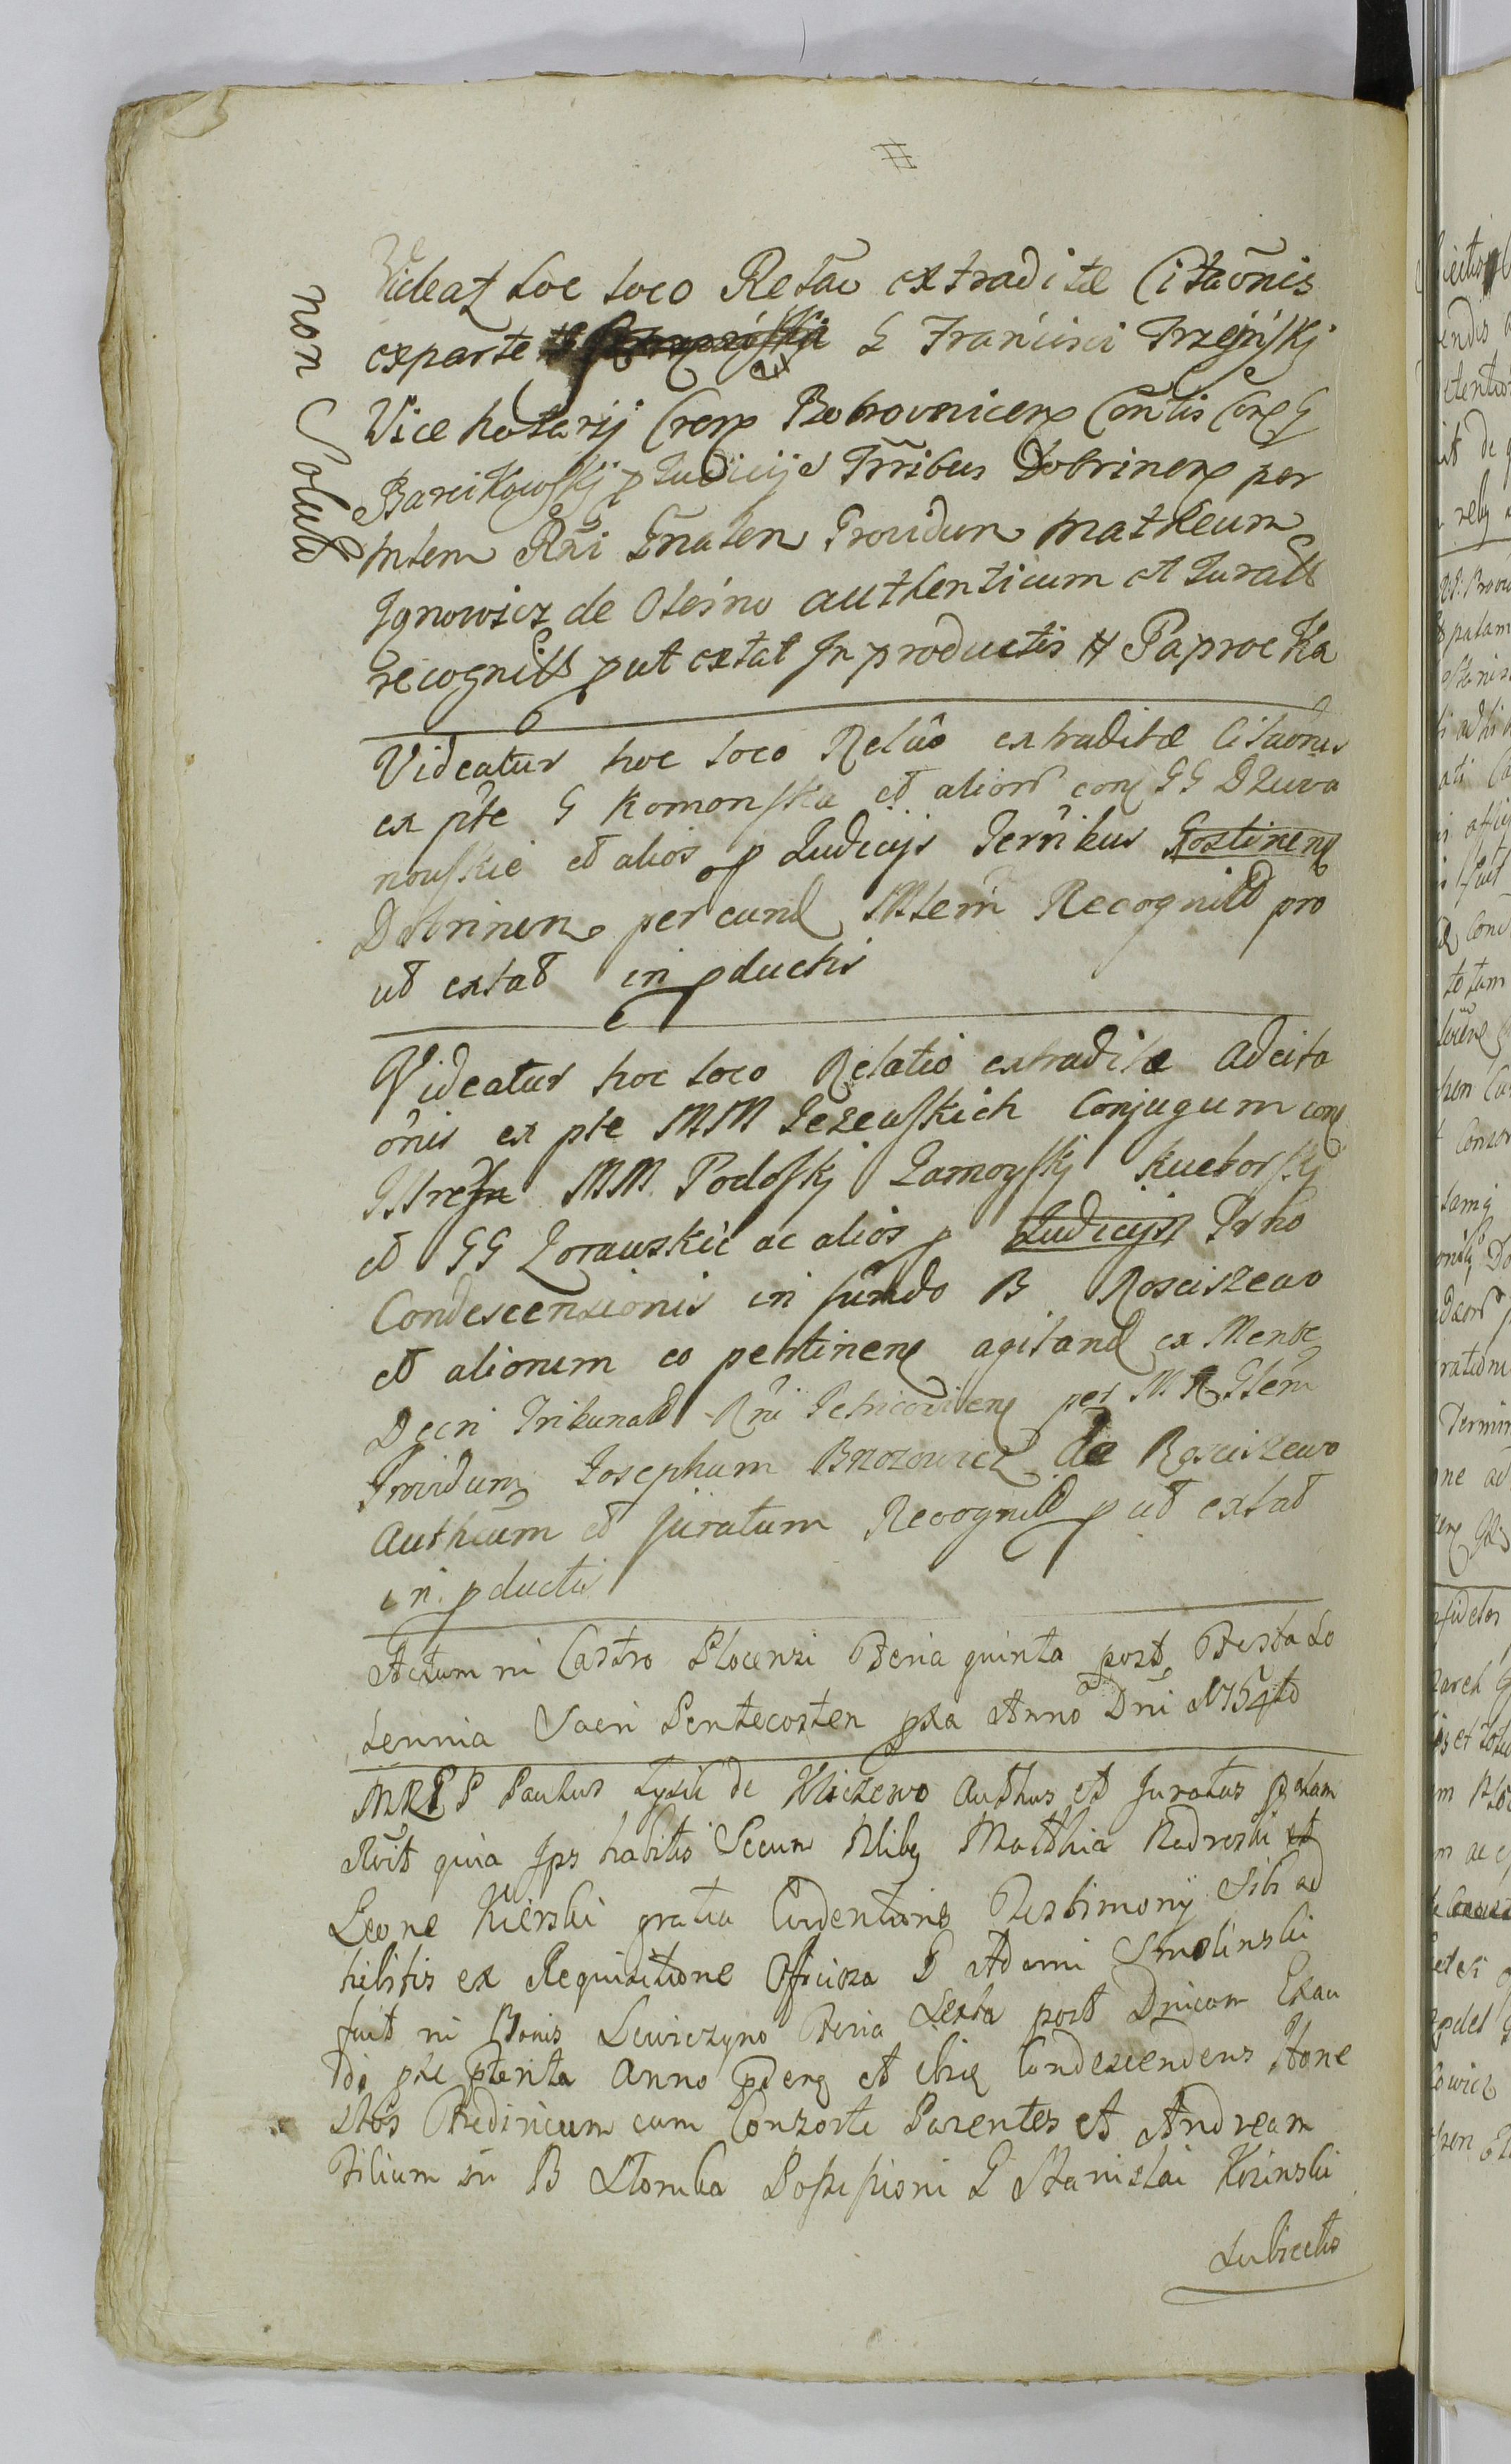 non Solut
Videat hoc loco Relãu extraditæ Citaõnis
exparte G Francisci Trzcińskj
Vice Notarij Crens Bobrovnicens Contis Cone G
Barcikowskj p Judicijs Trribus Dobrinens per
Mtem Rni Gnalem Providum Matheum
Ignowicz de Oleśno authenticum et Jurat
recognitt put extat In productis H Paprocka
Videatur hoc loco Relaô extraditæ Citaônis
ex pte G Komonska et alior con GG Dzuwa
nouskie et alios p Judicijs Terribus Gostinens
Dobrinen per eund Mtem Recognitt pro
ut extat in pductis
Videatur hoc loco Relatio extraditæ Adcita
õnis ex pte MM Jezewskich Conjugum con
MM Podoskj Zamoyskj Kuctorskj
et GG Zorauskie ac alios p Judicijs
Condescensionis in fundo B Rosciszewo
et aliorum eo pertinens agitand ex Mente
Decri Tribunal Rni Petricoviens per M R Glem
Providum Josephum Brzozowicz de Rosciszewo
Authcum et juratum Recognitt p ut extat
in pductis
Actum in Castro Plocensi Feria quinta post Festa So
lennia Sacri Pentecosten pxa Anno Dni 1754to
MRGP Paulus Lysik de Kliczewo Authus et Juratus palam
Rvit quia Ips habitis Secum Nlibg Matthia Nadroski et
Leone Kierski gratia Evidentioris Testimonij Sibi ad
hibitis ex Requisitione Officiosa G Adami Smolinski
fuit in Bonis Lewiczyno Feria Sexta post Dnicam Exau
di pxe pterita Anno pdens et ibiq Condescendens Hone
stos Fridericum cum Consorte Parentes et Andream
Filium in B Słomka Possessioni G Stanislai Kosinski
Subiectis